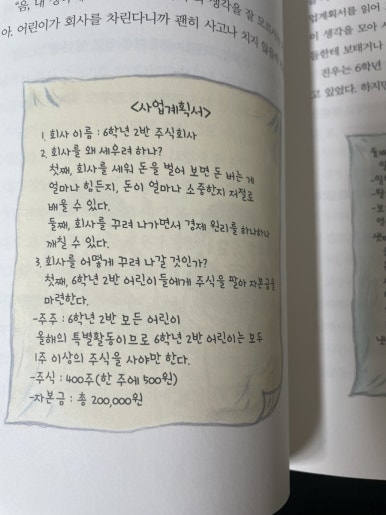 "음, 내
생각을 잘
야. 어린이가 회사를 차린다니까 괜히 사고나 치지 않을까
<사업계획서>
1. 회사 이름 : 6학년 2반 주식회사
2. 회사를 왜 세우려 하나?
첫째, 회사를 세워 돈을 벌어 보면 돈 버는 게
얼마나 힘든지, 돈이 얼마나 소중한지 저절로
배울 수 있다.
둘째, 회사를 꾸려 나가면서 경제 원리를 하나하나
깨칠 수 있다.
3. 회사를 어떻게 꾸려 나갈 것인가?
첫째, 6학년 2반 어린이들에게 주식을 팔아 자본금을
마련한다.
-주주 : 6학년 2반 모든 어린이
올해의 특별활동이므로 6학년 2반 어린이는 모두
1주 이상의 주식을 사야만 한다.
-주식 : 400주(한 주에 500원)
-자본금 : 총 200,000원
업계획서를 읽어
이 생각을 모아
들한테 보태거나
전우는 6학년
고 있었다. 하지만
둘째